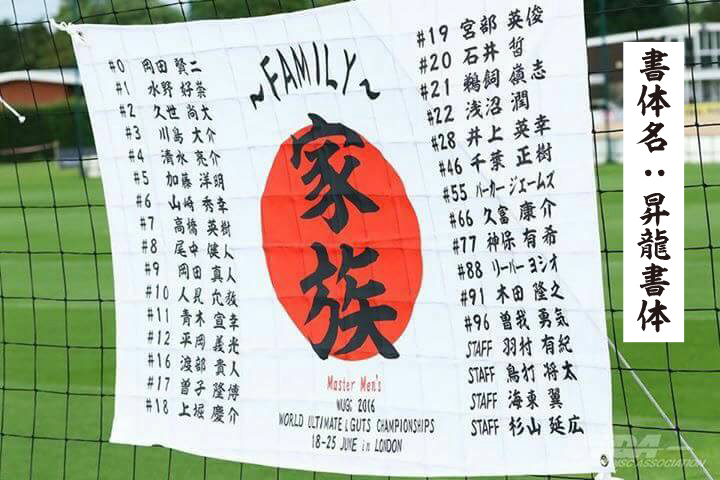 ~FAMILY~
家族
#0 岡田 賢二
#1 水野 好崇
#2 久世 尚大
#3 川島 大介
#4 清水 亮介
#5 加藤 洋明
#6 山崎 秀幸
#7 高橋 英樹
#8 尾中 健人
#9 岡田 真人
#10 人見 元毅
#11 青木 宣幸
#12 平岡 義光
#16 渡部 貴人
#17 曽子 隆傳
#18 上堀 慶介
#19 宮部 英俊
#20 石井 哲
#21 鵜飼 嶺志
#22 浅沼 潤
#28 井上 英幸
#46 千葉 正樹
#55 パーカー ジェームズ
#66 久冨 康介
#77 神保 有希
#88 リーパー ヨシオ
#91 木田 隆之
#96 曽我 勇気
STAFF 羽村 有紀
STAFF 鳥打 将太
STAFF 海東 翼
STAFF 杉山 延広
Master Men's
WUGC 2016
WORLD ULTIMATE & GUTS CHAMPIONSHIPS
18-25 JUNE in LONDON
書体名：昇龍書体
DISC ASSOCIATION